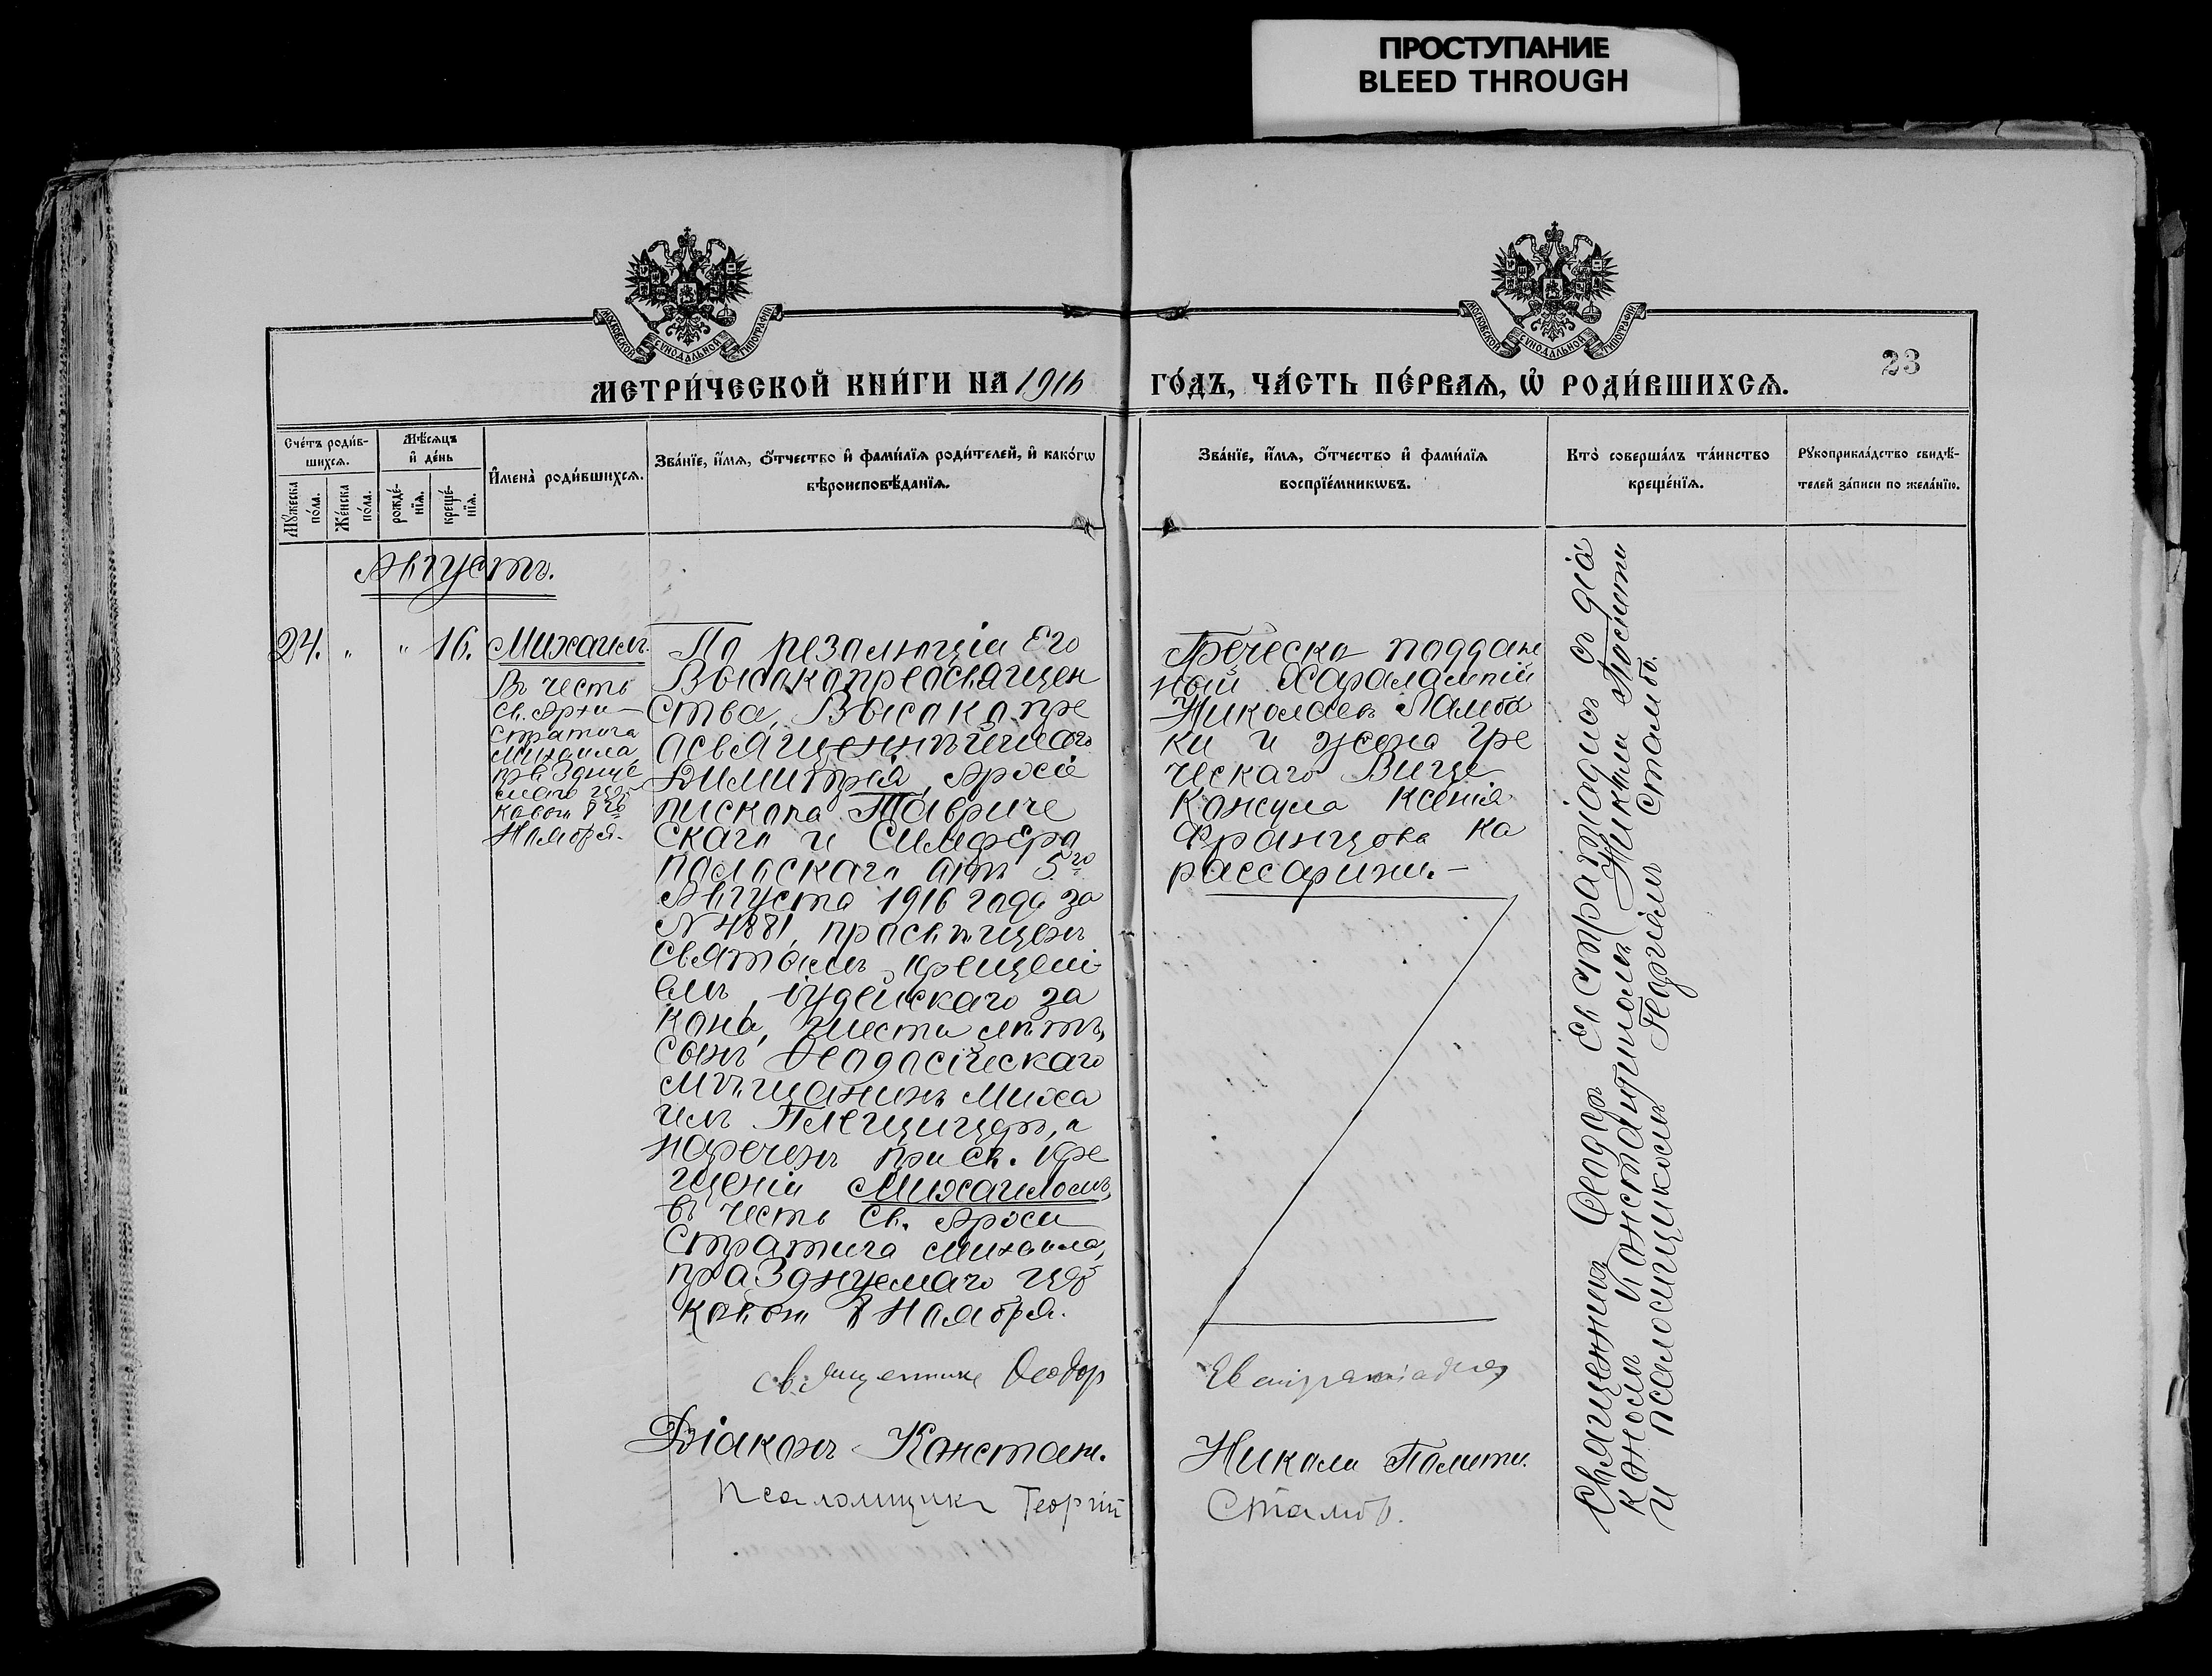 ПРОСТУПАНИЕ
BLEED THROUGH
МОСКОВСКОЙ СѴНОДАЛЬНОЙ ТИПОГРАФІИ
МОСКОВСКОЙ СѴНОДАЛЬНОЙ ТИПОГРАФІИ
23
МЕТРИ́ЧЕСКОЙ КНИ́ГИ НА 1916
ГО́ДЪ, ЧА́СТЬ ПЕ́РВАѦ, Ѡ҆ РОДИ́ВШИХСѦ.
Сче́тъ роди́в-
шихсѧ.
Мꙋ́жеска по́ла.
Же́нска по́ла.
Мѣ́сѧцъ
и҆ де́нь
рожде́-
нїѧ.
креще́-
нїѧ.
И҆мена̀ роди́вшихсѧ.
Зва́нїе, и҆́мѧ, ѻ҆́тчество и҆ фами́лїѧ роди́телей, и҆ како́гѡ
вѣроисповѣ́данїѧ.
Зва́нїе, и҆́мѧ, ѻ҆́тчество и҆ фами́лїѧ
воспрїе́мникѡвъ.
Кто̀ соверша́лъ та́инство
креще́нїѧ.
Рꙋкоприкла́дство свидѣ́-
телей за́писи по жела́нїю.
Августъ.
24. " " 16.
Михаилъ.
Въ честь
Св. Архи-
стратига
Михаила
праздуе
маго цер-
ковью 8го
Ноября.
По резолюціи Его
Высокопреосвящен
ства, Высокопре
освященнѣйшаго
Димитрія, Архіе
пископа Тавриче
скаго и Симферо
польскаго отъ 5го
Августа 1916 года за
N 4881, просвѣщенъ
святымъ крещені-
емъ, іудейскаго за
кона, шести лѣтъ,
сынъ Ѳеодосійскаго
мѣщанинъ Миха
илъ Плещицеръ, а
нареченъ при св. кре
щеніи Михаиломъ,
въ честь Св. Архи
стратига Михаила,
празднуемаго цер
ковью 8 Ноября.
Греческо поддан
ный Харалампій
Николаевъ Ламба
ки и жена гре
ческаго Вице
Консула Ксенія
Францова Ка
рассарини.-
Священникъ Ѳеодоръ Евстратіадисъ съ діа
кономъ Константиномъ Никола Политы
и псаломщикомъ Георгіемъ Стамбо.
Священникъ Ѳеодоръ Евстратіадисъ
Діаконъ Констан. Никола Полити.
Псаломщикъ Георгій Стамбо.